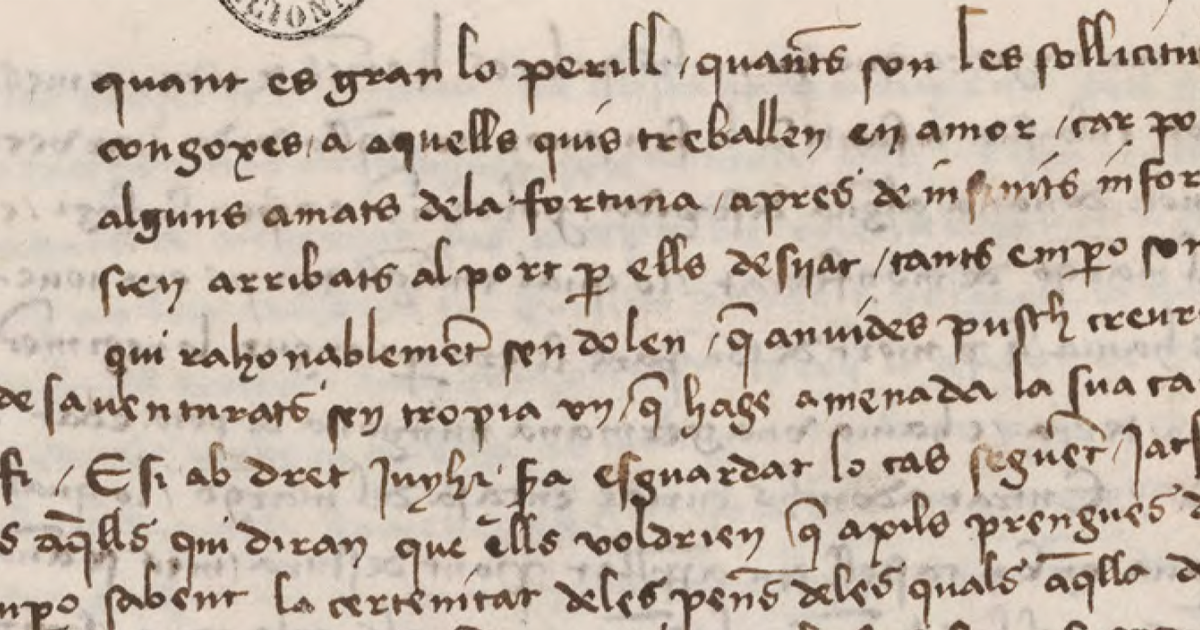 CIONA
quant es gran lo perill / quants son les sollicitu
congoxes / a aquells quis treballen en amor / car po
alguns amats dela fortuna / apres de infinits infor
sien arribats al port ꝑ ells desijat / tants emꝑo son
qui rahonablemēt sen dolen / q̄ anvides pusch creur
desaventurats sen tropia vn / q̄ hage amenada la sua ca
fi / E si ab dret Juyhi ẜa esguardat lo cas seguēt / Jats
s aq̄lls qui diran que ells voldrien q̄ axils prengues d
mꝑo sabent la certenitat deles penes deles quals aq̄lla d